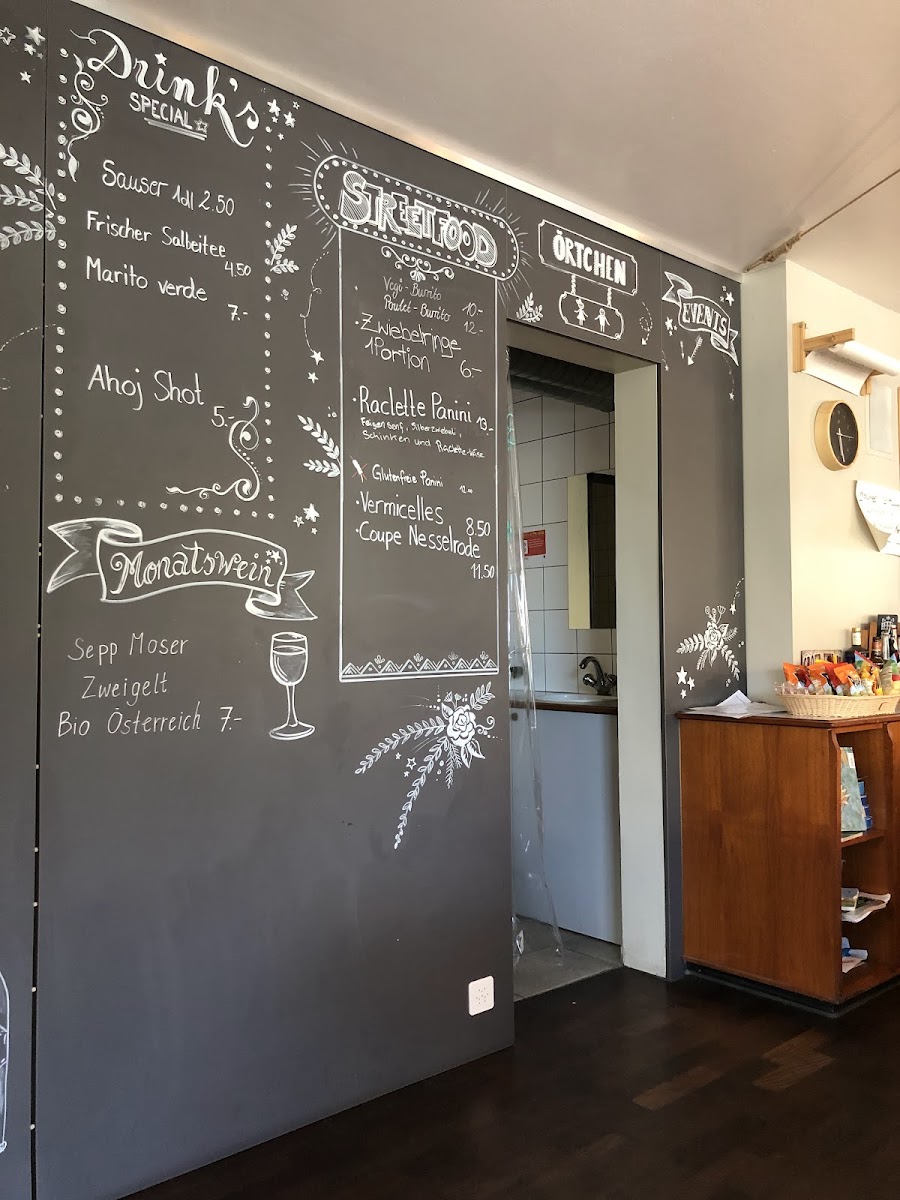 Drink's
SPECIAL
Sauser 1dl 2.50
Frischer Salbeitee
4.50
Marito verde
7.-
Ahoj Shot
5.-
Monatswein
Sepp Moser
Zweigelt
Bio Österreich 7.-
STREETFOOD
Vegi-Burrito 10.-
Poulet-Burrito 12.-
·Zwiebelringe
1Portion 6.-
·Raclette Panini 13.-
Feigensenf, Silberzwiebeli,
Schinken und Raclette-Käse
Glutenfreie Panini
·Vermicelles 8.50
·Coupe Nesselrode
11.50
ÖRTCHEN
EVENTS